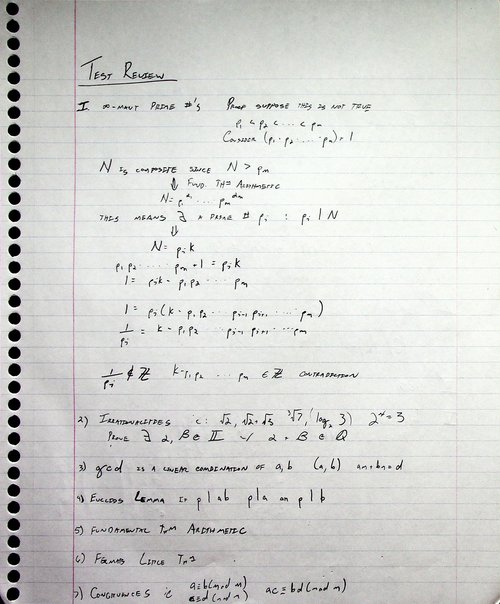 TEST REVIEW
I. ∞-MANY PRIME #'S PROOF SUPPOSE THIS IS NOT TRUE
p₁ < p₂ < ... < pₘ
CONSIDER (p₁·p₂·...·pₘ)+1
N IS COMPOSITE SINCE N > pₘ
⇓ FUND. THM ARITHMETIC
N = p^α₁ ... pₘ^αₘ
THIS MEANS ∃ A PRIME # pⱼ : pⱼ | N
⇓
N = pⱼk
p₁p₂ ... pₘ + 1 = pⱼk
1 = pⱼk - p₁p₂ ... pₘ
1 = pⱼ(k - p₁p₂ ... pⱼ₋₁pⱼ₊₁ ... pₘ)
1/pⱼ = k - p₁p₂ ... pⱼ₋₁ pⱼ₊₁ ... pₘ
1/pⱼ ∉ ℤ k-p₁p₂ ... pₘ ∈ ℤ CONTRADICTION
2) IRRATIONALITIES √2, √2+√3 ³√7, (log₂ 3) 2^x=3
PROVE ∃ α, β ∈ 𝕀 α + β ∈ ℚ
3) gcd IS A LINEAR COMBINATION OF a,b (a,b) am+bn=d
4) EUCLIDS LEMMA IF p | ab p|a OR p | b
5) FUNDAMENTAL THM ARITHMETIC
6) FERMATS LITTLE THM
7) CONGRUENCES a≡b(mod m) ac≡bd(mod m)
c≡d(mod m)